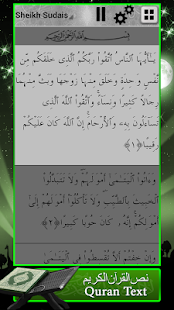 Sheikh Sudais
بسم الله الرحمن الرحيم
يَـٰٓأَيُّهَا ٱلنَّاسُ ٱتَّقُوا۟ رَبَّكُمُ ٱلَّذِى خَلَقَكُم مِّن
نَّفْسٍ وَٰحِدَةٍ وَخَلَقَ مِنْهَا زَوْجَهَا وَبَثَّ مِنْهُمَا
رِجَالًا كَثِيرًا وَنِسَآءً ۚ وَٱتَّقُوا۟ ٱللَّهَ ٱلَّذِى
تَسَآءَلُونَ بِهِۦ وَٱلْأَرْحَامَ ۚ إِنَّ ٱللَّهَ كَانَ عَلَيْكُمْ
رَقِيبًا ﴿١﴾
وَءَاتُوا۟ ٱلْيَتَـٰمَىٰٓ أَمْوَٰلَهُمْ ۖ وَلَا تَتَبَدَّلُوا۟
ٱلْخَبِيثَ بِٱلطَّيِّبِ ۖ وَلَا تَأْكُلُوٓا۟ أَمْوَٰلَهُمْ
إِلَىٰٓ أَمْوَٰلِكُمْ ۚ إِنَّهُۥ كَانَ حُوبًا كَبِيرًا ﴿٢﴾
وَإِنْ خِفْتُمْ أَلَّا تُقْسِطُوا۟ فِى ٱلْيَتَـٰمَىٰ
نص القرآن الكريم
Quran Text